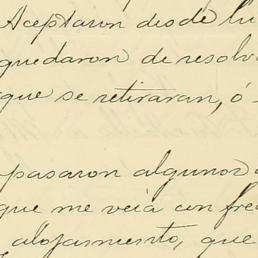 Aceptaron desde lu
quedaron de resolv
que se retiraran, ó
pasaron algunos
que me veía con fre
alojamiento, que